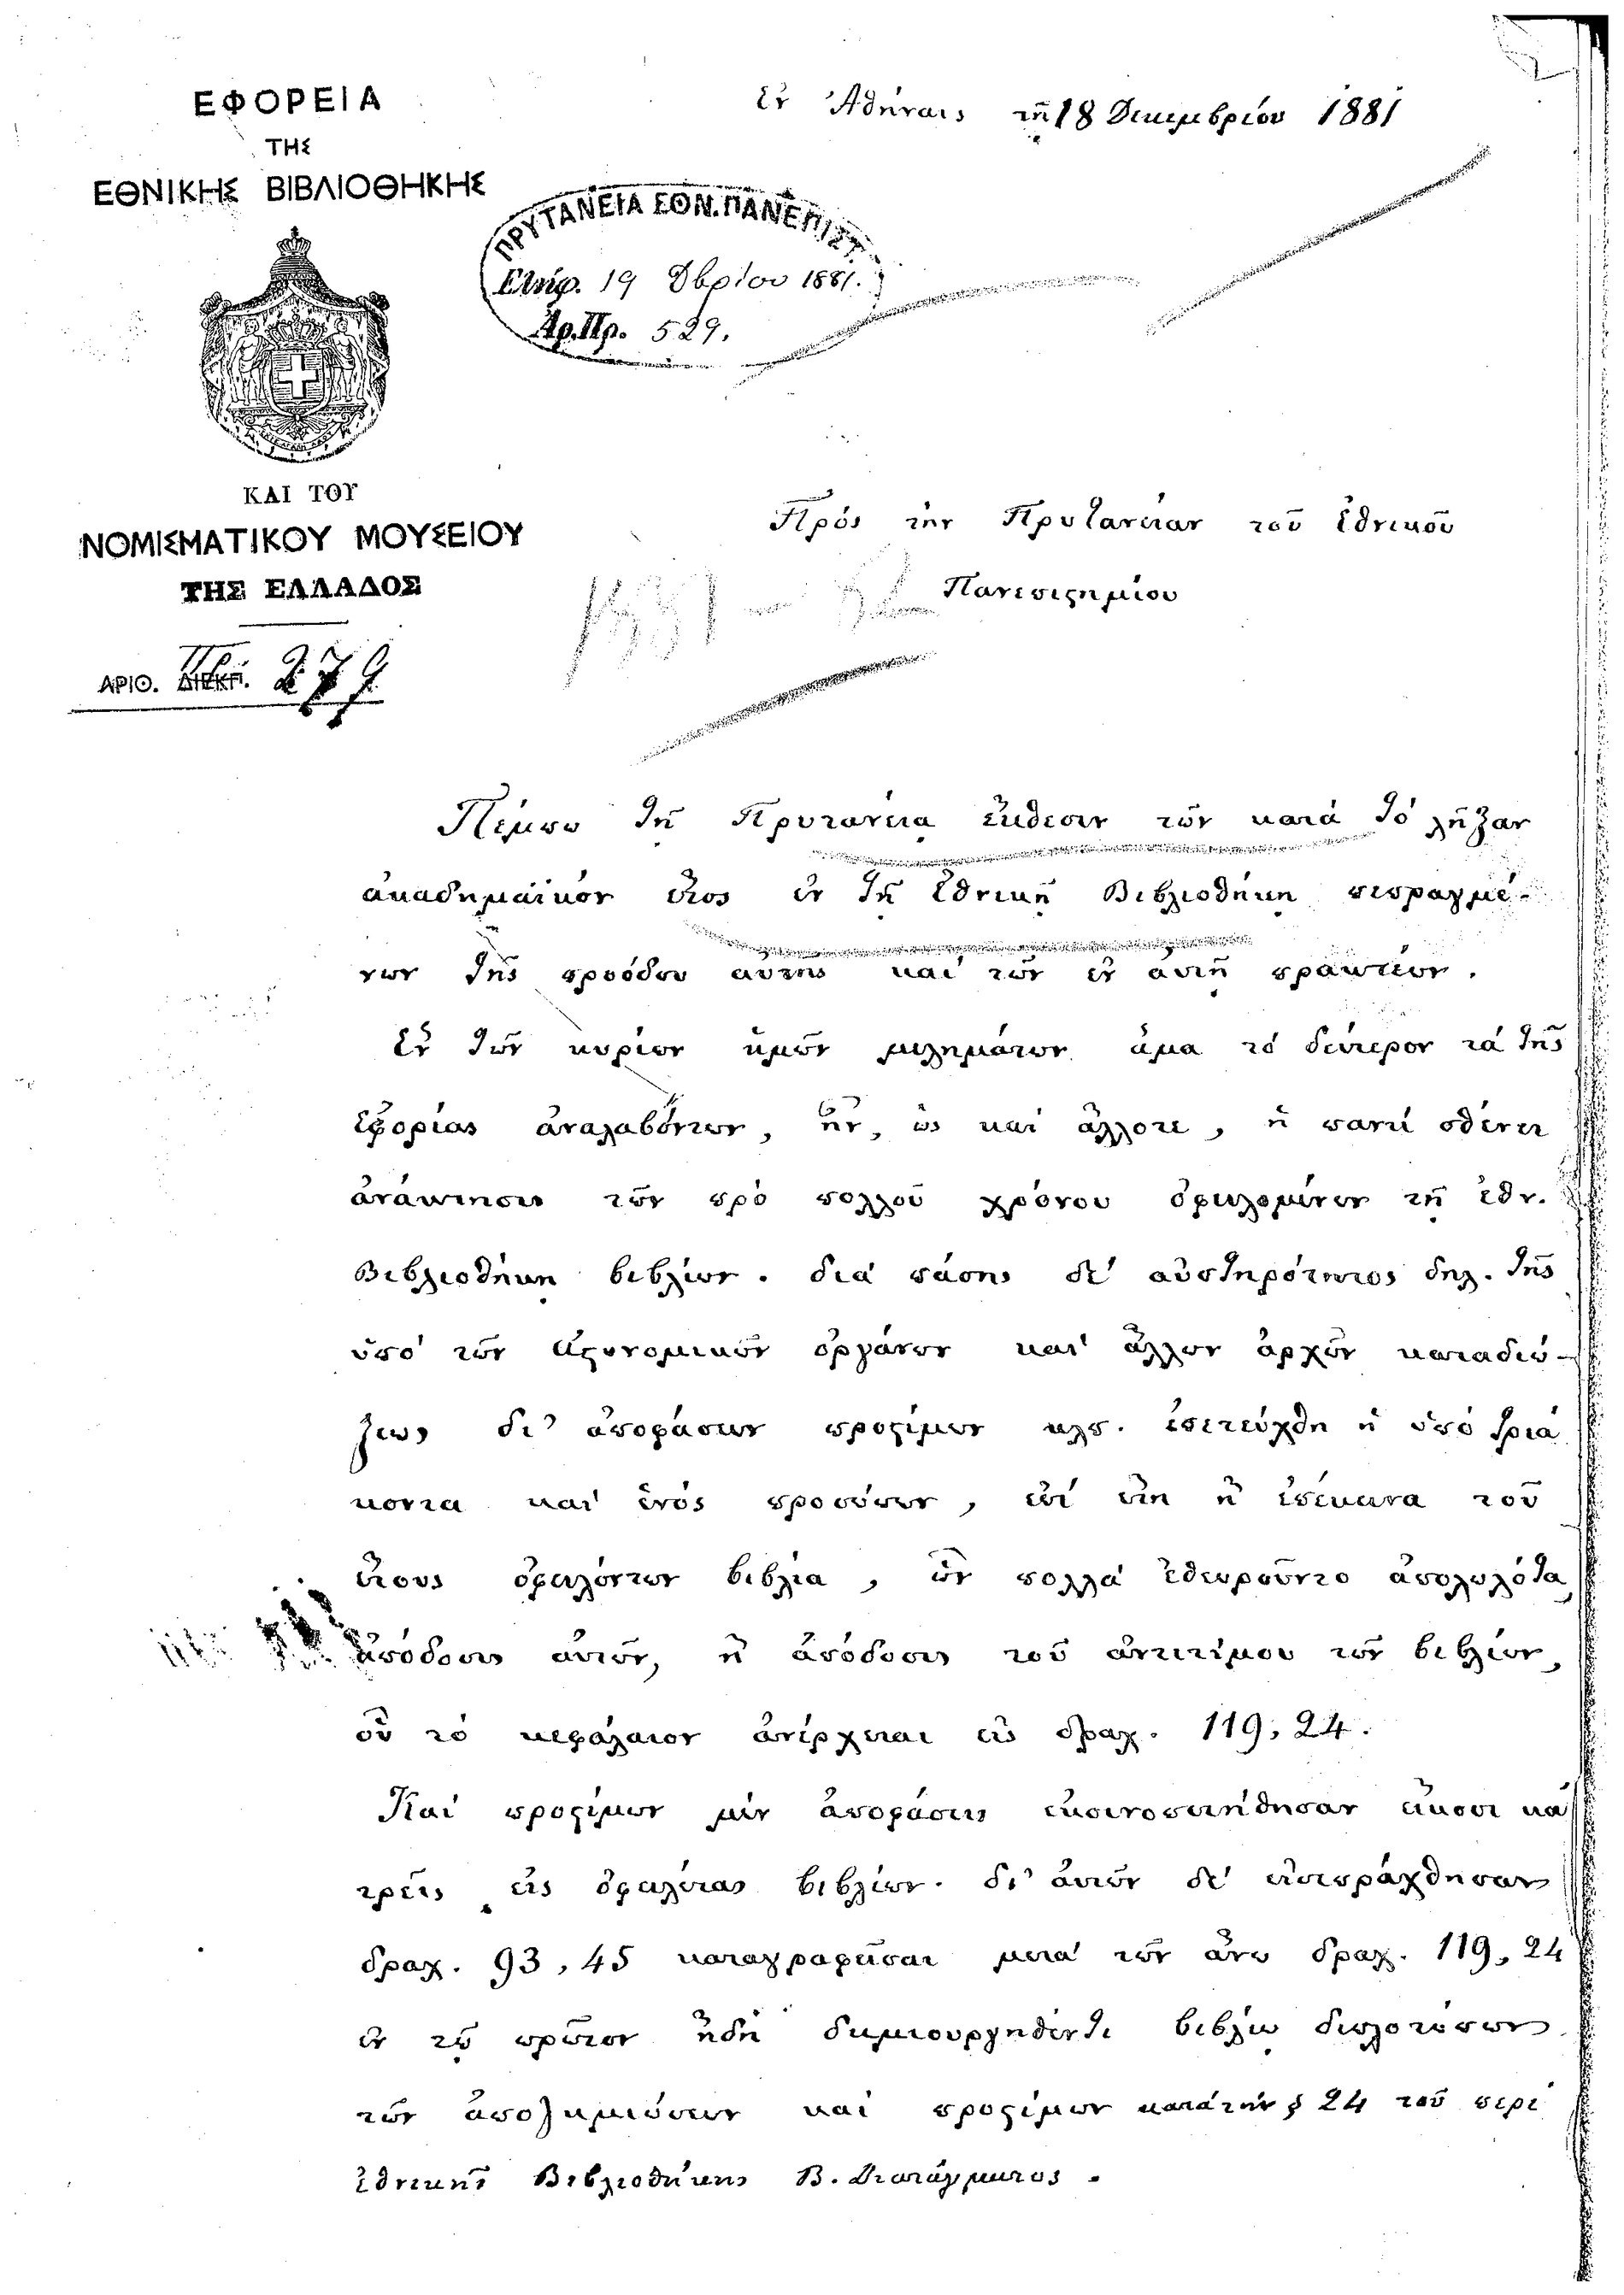 ΕΦΟΡΕΙΑ
ΤΗΣ
ΕΘΝΙΚΗΣ ΒΙΒΛΙΟΘΗΚΗΣ
ΚΑΙ ΤΟΥ
ΝΟΜΙΣΜΑΤΙΚΟΥ ΜΟΥΣΕΙΟΥ
ΤΗΣ ΕΛΛΑΔΟΣ
ΑΡΙΘ. Πρ. 279
Ἐν Ἀθήναις τῇ 18 Δεκεμβρίου 1881
ΠΡΥΤΑΝΕΙΑ ΕΘΝ. ΠΑΝΕΠΙΣΤ.
Ἐλήφ. 19 Δβρίου 1881.
Ἀρ. Πρ. 529.
Πρός τήν Πρυτανείαν τοῦ Ἐθνικοῦ
Πανεπιστημίου
1881 – 82
Πέμπω τῇ Πρυτανείᾳ ἔκθεσιν τῶν κατά τό λῆξαν
ἀκαδημαϊκόν ἔτος ἐν τῇ Ἐθνικῇ Βιβλιοθήκῃ πεπραγμέ-
νων τῆς προόδου αὐτῆς καί τῶν ἐν αὐτῇ πρακτέων.
Ἐν τῶν κυρίων ἡμῶν μελημάτων ἅμα τό δεύτερον τά τῆς
Ἐφορίας ἀναλαβόντων, ἦν, ὡς καί ἄλλοτε, ἡ παντί σθένει
ἀνάκτησις τῶν πρό πολλοῦ χρόνου ὀφειλομένων τῇ Ἐθν.
Βιβλιοθήκῃ βιβλίων. διά πάσης δέ αὐστηρότητος δηλ. τῆς
ὑπό τῶν ἀστυνομικῶν ὀργάνων καί ἄλλων ἀρχῶν καταδιώ-
ξεως δι' ἀποφάσεων προστίμων κλπ. ἐπετεύχθη ἡ ὑπό τριά
κοντα καί ἑνός προσώπων, ἐπί ἔτη ἤ ἐπέκεινα τοῦ
ἔτους ὀφειλόντων βιβλία, ὧν πολλά ἐθεωροῦντο ἀπολωλότα,
ἀπόδοσις αὐτῶν, ἤ ἀπόδοσις τοῦ ἀντιτίμου τῶν βιβλίων,
οὗ τό κεφάλαιον ἀνέρχεται εἰς δραχ. 119,24.
Καί προστίμων μέν ἀποφάσεις ἐκοινοποιήθησαν εἴκοσι καί
τρεῖς εἰς ὀφειλέτας βιβλίων. δι' αὐτῶν δέ εἰσεπράχθησαν
δραχ. 93,45 καταγραφεῖσαι μετά τῶν ἄνω δραχ. 119,24
ἐν τῷ πρῶτον ἤδη δημιουργηθέντι βιβλίῳ διπλοτύπων
τῶν ἀποζημιώσεων καί προστίμων κατά τήν § 24 τοῦ περί
Ἐθνικῆς Βιβλιοθήκης Β. Διατάγματος.